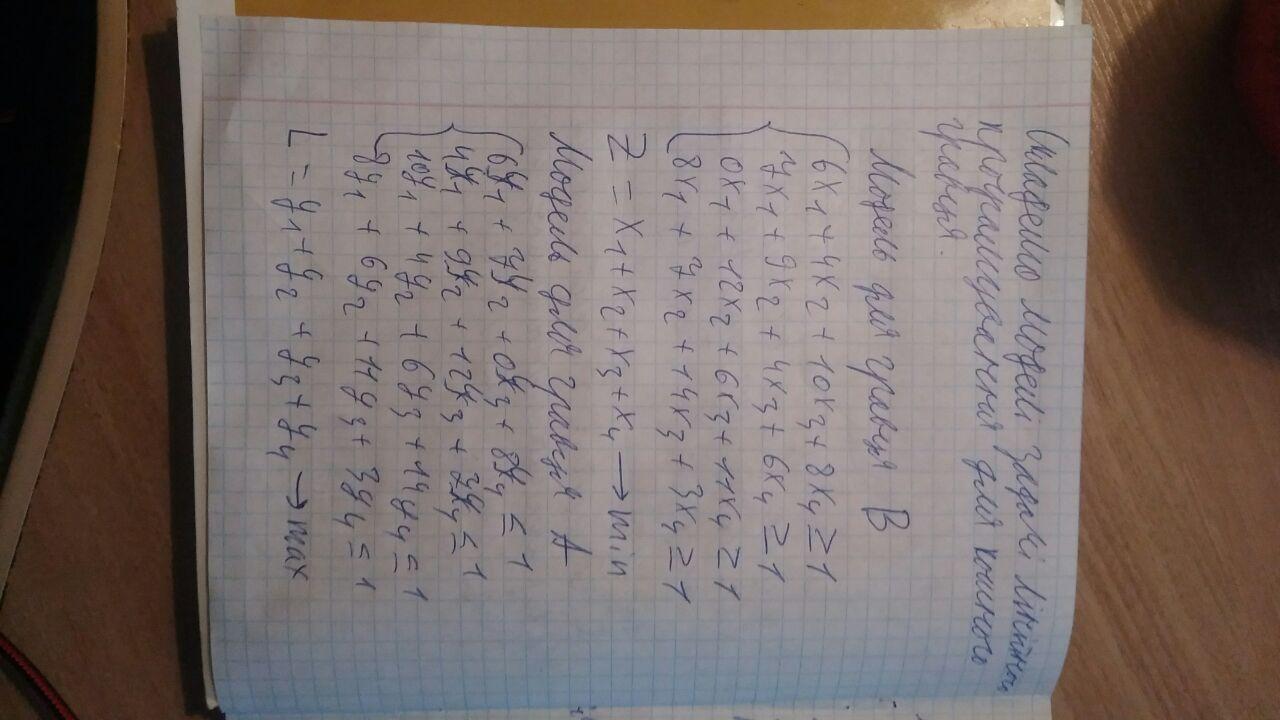 Складемо моделі задачі лінійного
програмування для кожного
гравця.
Модель для гравця В
6x1 + 4x2 + 10x3 + 8x4 ≥ 1
7x1 + 9x2 + 4x3 + 6x4 ≥ 1
0x1 + 12x2 + 6x3 + 14x4 ≥ 1
8x1 + 7x2 + 14x3 + 3x4 ≥ 1
Z = x1 + x2 + x3 + x4 → min
Модель для гравця А
6y1 + 7y2 + 0y3 + 8y4 ≤ 1
4y1 + 9y2 + 12y3 + 7y4 ≤ 1
10y1 + 4y2 + 6y3 + 14y4 ≤ 1
8y1 + 6y2 + 14y3 + 3y4 ≤ 1
L = y1 + y2 + y3 + y4 → max